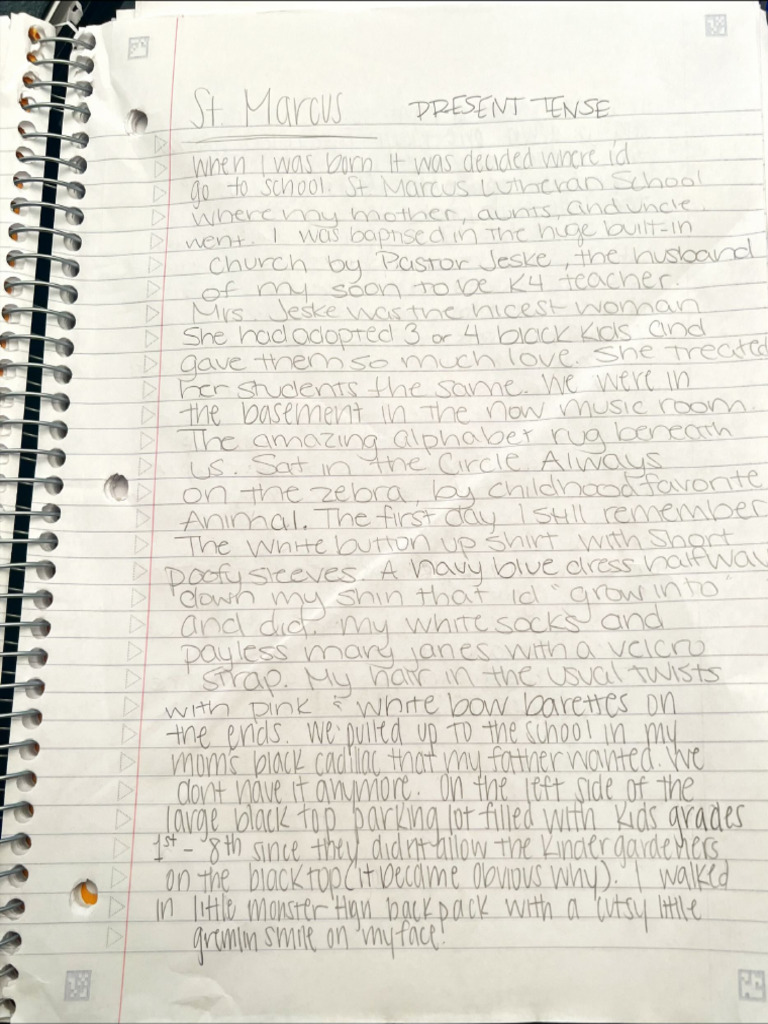 St. Marcus PRESENT TENSE
When I was born it was decided where i'd
go to school. St Marcus Lutheran School
where my mother, aunts, and uncle
went. I was baptised in the huge built-in
church by Pastor Jeske, the husband
of my soon to be K4 teacher.
Mrs. Jeske was the nicest woman
She had adopted 3 or 4 black kids and
gave them so much love. She treated
her students the same. We were in
the basement in the now music room.
The amazing alphabet rug beneath
us. Sat in the Circle Always
on the zebra, by childhood favorite
Animal. The first day I still remember
The white button up shirt with short
poofy sleeves. A navy blue dress halfway
down my shin that id "grow into"
and did. my white socks and
payless mary janes with a velcro
strap. My hair in the usual twists
with pink & white bow barettes on
the ends. We pulled up to the school in my
moms black cadilac that my father wanted. We
dont have it anymore. On the left side of the
large black top parking lot filled with kids grades
1st - 8th since they didnt allow the kindergardeners
on the blacktop (it became obvious why). I walked
in little monster high backpack with a cutsy little
gremlin smile on my face!